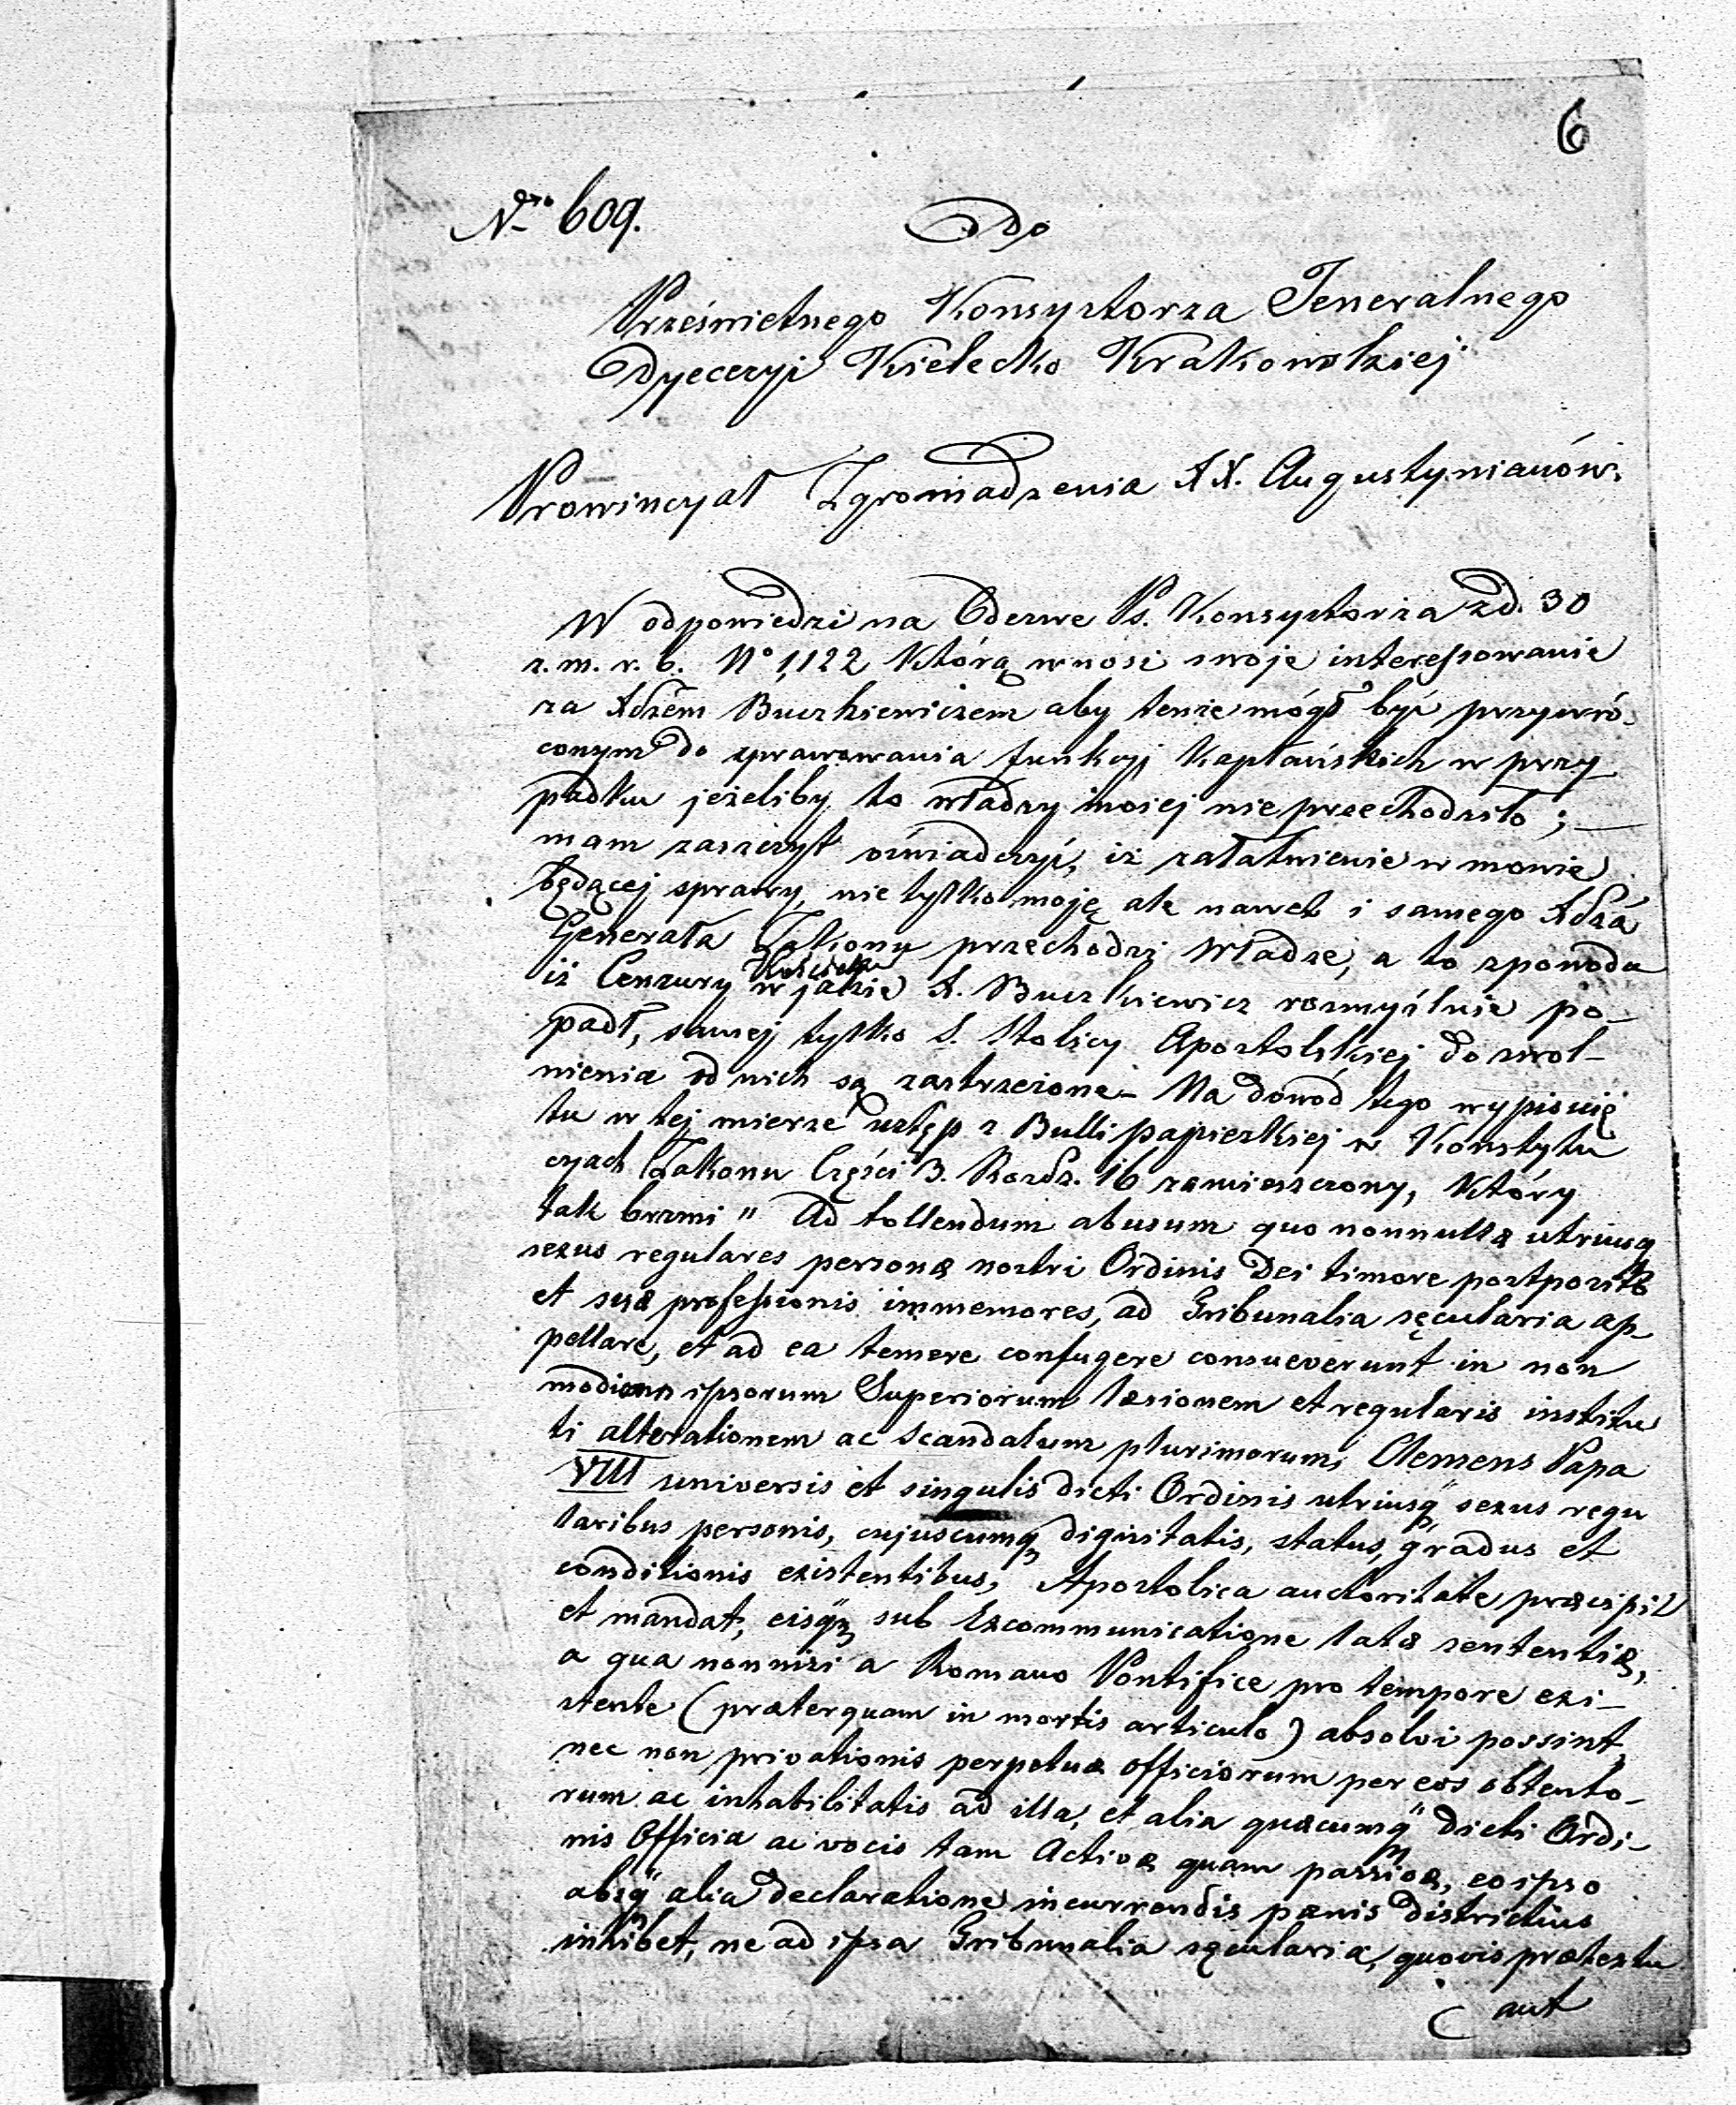 6
Nro 609.
Do
Prześwietnego Konsystorza Jeneralnego
Dyecezyi Kielecko Krakowskiej
Prowincyał Zgromadzenia XX. Augustynianów.
W odpowiedzi na Odezwę Ps. Konsystorza z d. 30
z. m. r. b. No 1,122 którą wnosi swoje interessowanie
za Xdzem Buczkiewiczem aby tenże mógł być przywró-
conym do sprawowania funkcyj Kapłańskich w przy
padku jeżeliby to władzy mojej nie przechodziło; —
mam zaszczyt oświadczyć, iż załatwienie w mowie
będącej sprawy, nie tylko moję ale nawet i samego Xdza
Generała Zakonu przechodzi Władzę, a to z powodu
iż Cenzury Kościoła w jakie X. Buczkiewicz rozmyślnie po-
padł, samej tylko S. Stolicy Apostolskiej do uwol-
nienia od nich są zastrzeżone.– Na dowód tego wypisuię
tu w tej mierze ustęp z Bulli papiezkiej w Konstytu
cyach Zakonu Części 3. Rozdz. 16 zamieszczony, który
tak brzmi " Ad tollendum abusum quo nonnullæ utriusq
sexus regulares personæ nostri Ordinis Dei timore postposito
et suæ professionis immemores, ad Tribunalia sęcularia ap
pellare, et ad ea temere confugere consueverunt in non
modicam ipsorum Superiorum læsionem et regularis institu
ti alterationem ac scandalum plurimorum, Clemens Papa
VIII universis et singulis dicti Ordinis utriusq sexus regu
laribus personis, cujuscumq dignitatis, status, gradus et
conditionis existentibus, Apostolica auctoritate præcipit
et mandat, eisq sub Excommunicatione latæ sententiæ,
a qua nonnisi a Romano Pontifice pro tempore exi-
stente (præterquam in mortis articulo) absolvi possint,
nec non privationis perpetuæ officiorum per eos obtento-
rum ac inhabilitatis ad illa, et alia quæcumq dicti Ordi-
nis Officia ac vocis tam Activæ quam passivæ, eo ipso
absq alia declaratione incurrendis pænis districtius
inhibet, ne ad ipsa Tribunalia sęcularia, quovis prætextu
aut